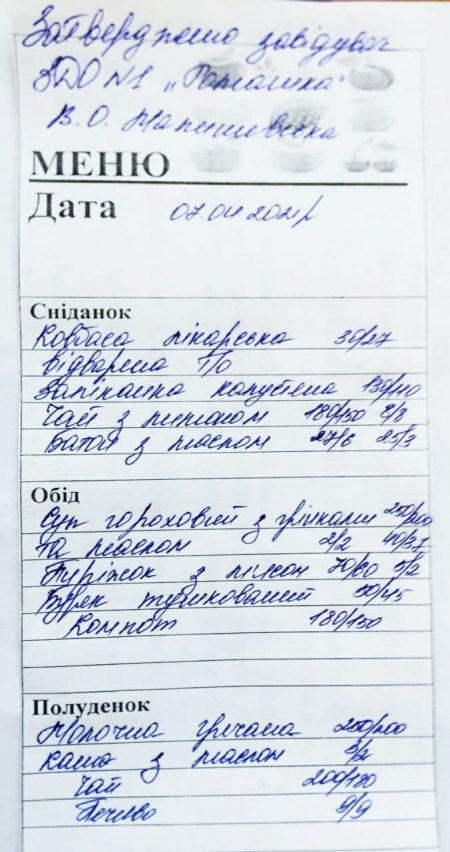 Затверджено завідувач
ЗДО №1 „Ромашка"
В.О.
МЕНЮ
Дата 07.04.2021р
Сніданок
Ковбаса лікарська 30/27
відварена т/о
Запіканка капустяна 130/110
Чай з лимоном 180/150 8/3
Батон з маслом 27/6 25/3
Обід
Суп гороховий з грінками 250/200
та маслом 2/2 40/27
Пиріжок з м'ясом 70/60 5/2
Буряк тушкований 50/45
Компот 180/150
Полуденок
Молочна гречана 250/200
каша з маслом 3/2
Чай 200/180
Печиво 9/9